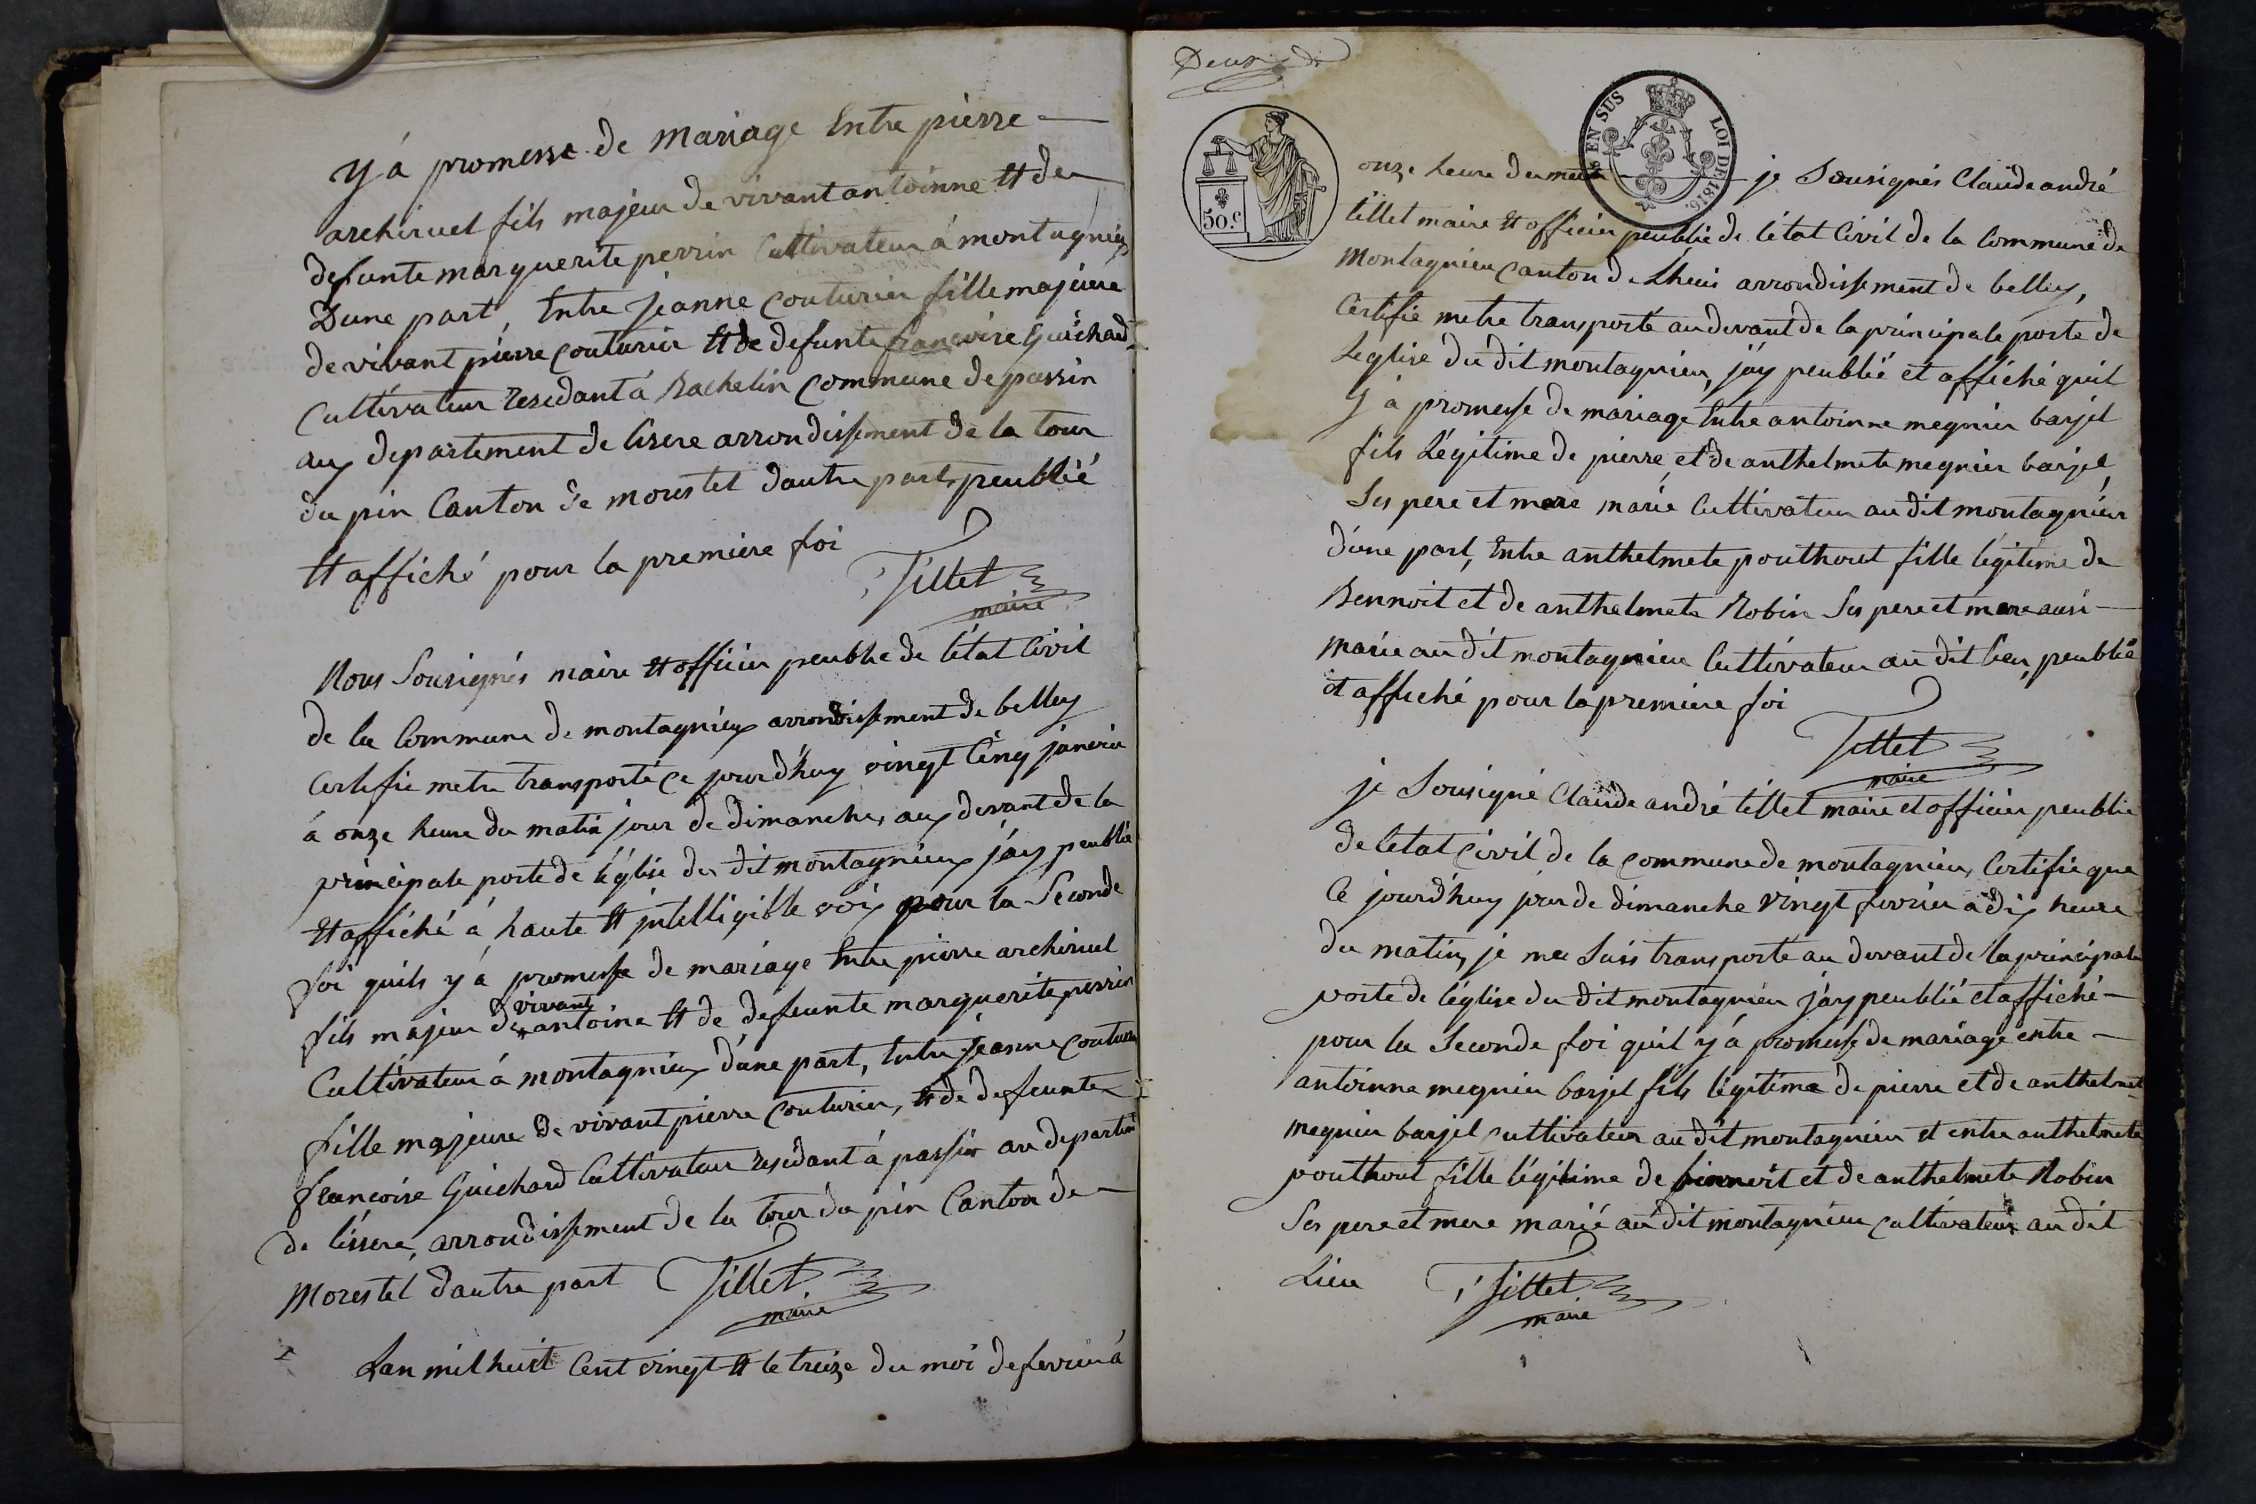 y á promesse de mariage Entre pierre
archiruel fils majeur de vivant antoinne Et de
defunte marguerite perrin Cultivateur á montagnieu
Dune part, Entre Jeanne couturier fille majeure
de vivant pierre couturier Et de defunte francoise Guichard
Cultivateur residant á Bachelin commune de passin
aux departement de lisere arrondissement de la tour
du pin Canton de morestel dautre part, peublié
Et affiché pour la premiere foi
Tillet
maire
Nous Sousignés maire Et officier peublic de létat Civil
de la Commune de montagnieu arrondissement de belley
Certifie metre transporté ce jourd'huy vingt Cinq janvier
á onze heure du matin jour de dimanche, aux devant de la
principale porte de léglise du dit montagnieu jáy peublié
Et affiché á haute Et jntelligible voix pour la Seconde
foi quils y á promesse de mariage Entre pierre archiruel
vivant
fils majeur de antoine Et de defeunte marguerite perrin
Cultivateur á montagnieu d'une part, Entre Jeanne couturier
fille majeure de vivant pierre couturier, Et de defeunte
francoise Guichard Cultivateur residant á passin au departem
de lissere, arrondissement de la tour du pin Canton de
Morestel dautre part
Tillet
maire
Lan mil huit Cent vingt Et le treize du moi de fevrier á
Deux
EN SUS LOI DE 1816.
50.c
onze heure du matin je Sousignés Claude andré
tillet maire Et officier peublic de létat Civil de la Commune de
Montagnieu canton de Lhuis arrondissement de belley,
Certifie metre transporté au devant de la principale porte de
Léglise du dit montagnieu, jáy peublié et affiché quil
y á promesse de mariage Entre antoinne megnier barjel
fils Légitime de pierre et de anthelmete megnier barjel,
Ses pere et mere marié Cultivateur au dit montagnieu
d'une part, Entre anthelmete pouthout fille légitime de
Bennoit et de anthelmete Robin Ses pere et mere ausi
marié au dit montagnieu Cultivateur au dit lieu, peublié
et affiché pour la premiere foi
Tillet
maire
je Sousigné Claude andré tillet maire et officier peublic
de létat Civil de la commune de montagnieu, Certifie que
Ce jourd'huy jour de dimanche vingt fevrier á dix heure
du matin, je me suis transporté au devant de la principale
porte de léglise du dit montagnieu jáy peublié et affiché
pour la Seconde foi quil y á promesse de mariage entre
antoinne megnier barjel fils légitime de pierre et de anthelmet
megnier barjel cultivateur au dit montagnieu et entre anthelmete
pouthout fille légitime de binnoit et de anthelmete Robin
Ses pere et mere marié au dit montagnieu cultivateur au dit
Lieu
Tillet
maire